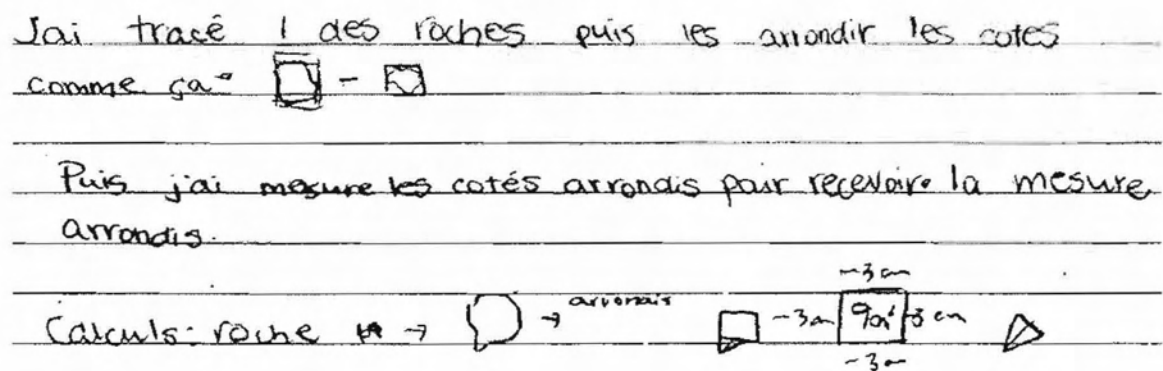 Jai tracé 1 des roches puis les arrondir les cotes
comme ça:
Puis j'ai mesure les cotés arrondis pour recevoire la mesure
arrondis.
~3 cm
Calculs: roche → → arrondis ~3 cm 9cm² ~3 cm
~3 cm